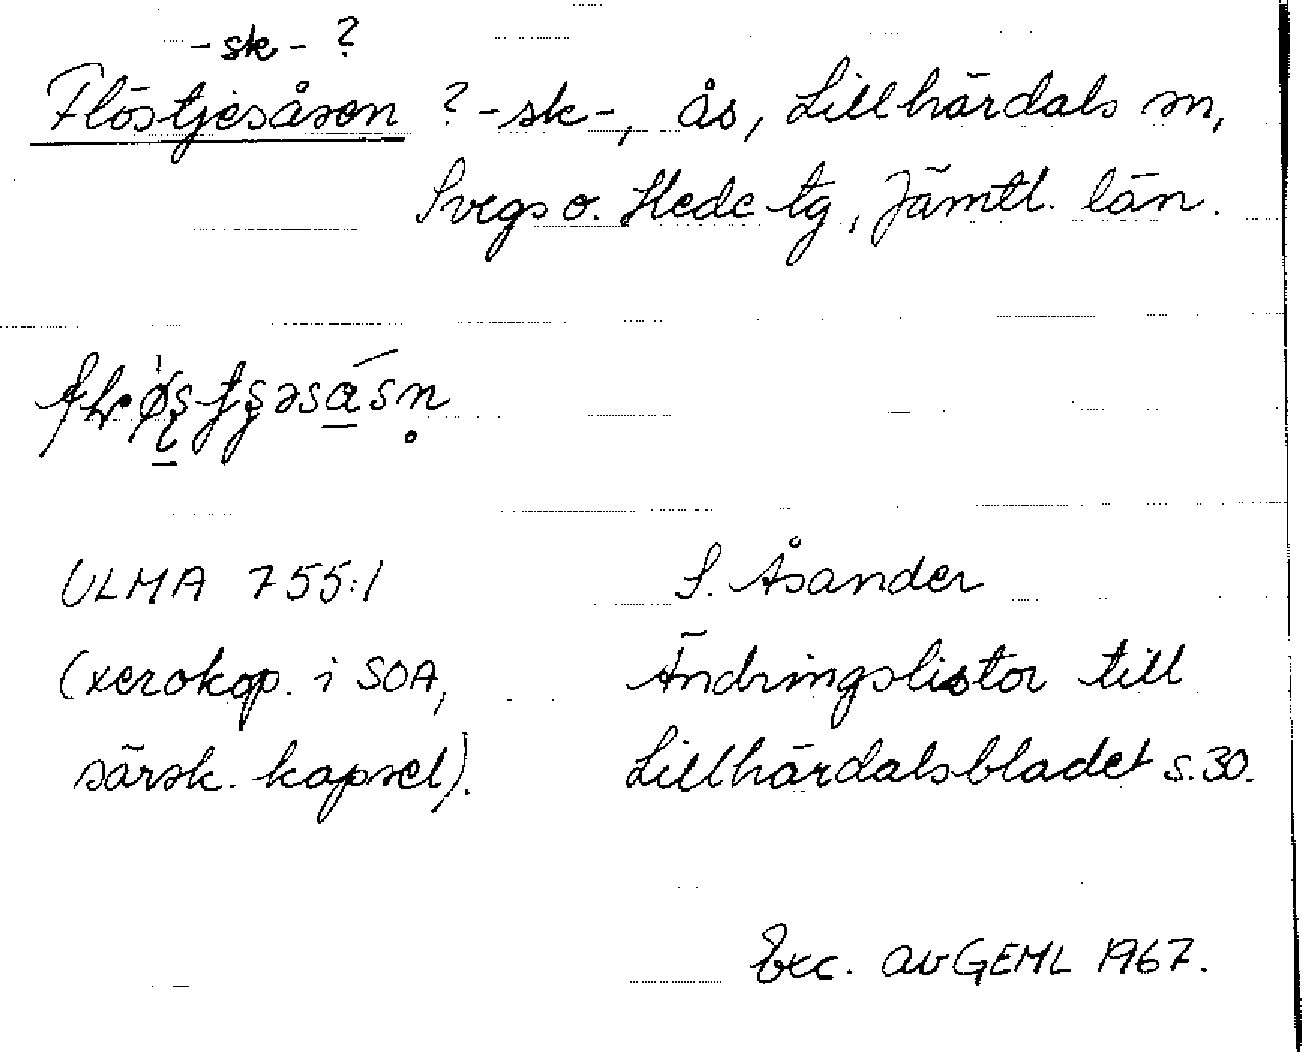 -sk- ?
Flöstjesåsen ? -sk-, ås, Lillhärdals sn,
Svegs o. Hede tg, Jämtl. län.
ULMA 755:1
(xerokop. i SOA,
särsk. kapsel).
S. Åsander
Ändringslistor till
Lillhärdalsbladet s. 30.
Exc. av GEML 1967.